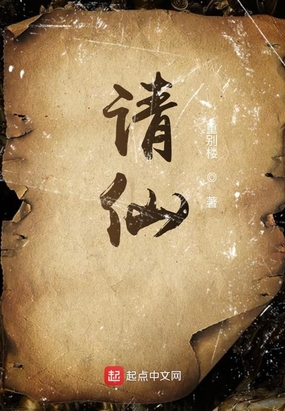 请仙
重别楼 ◎ 著
起 起点中文网